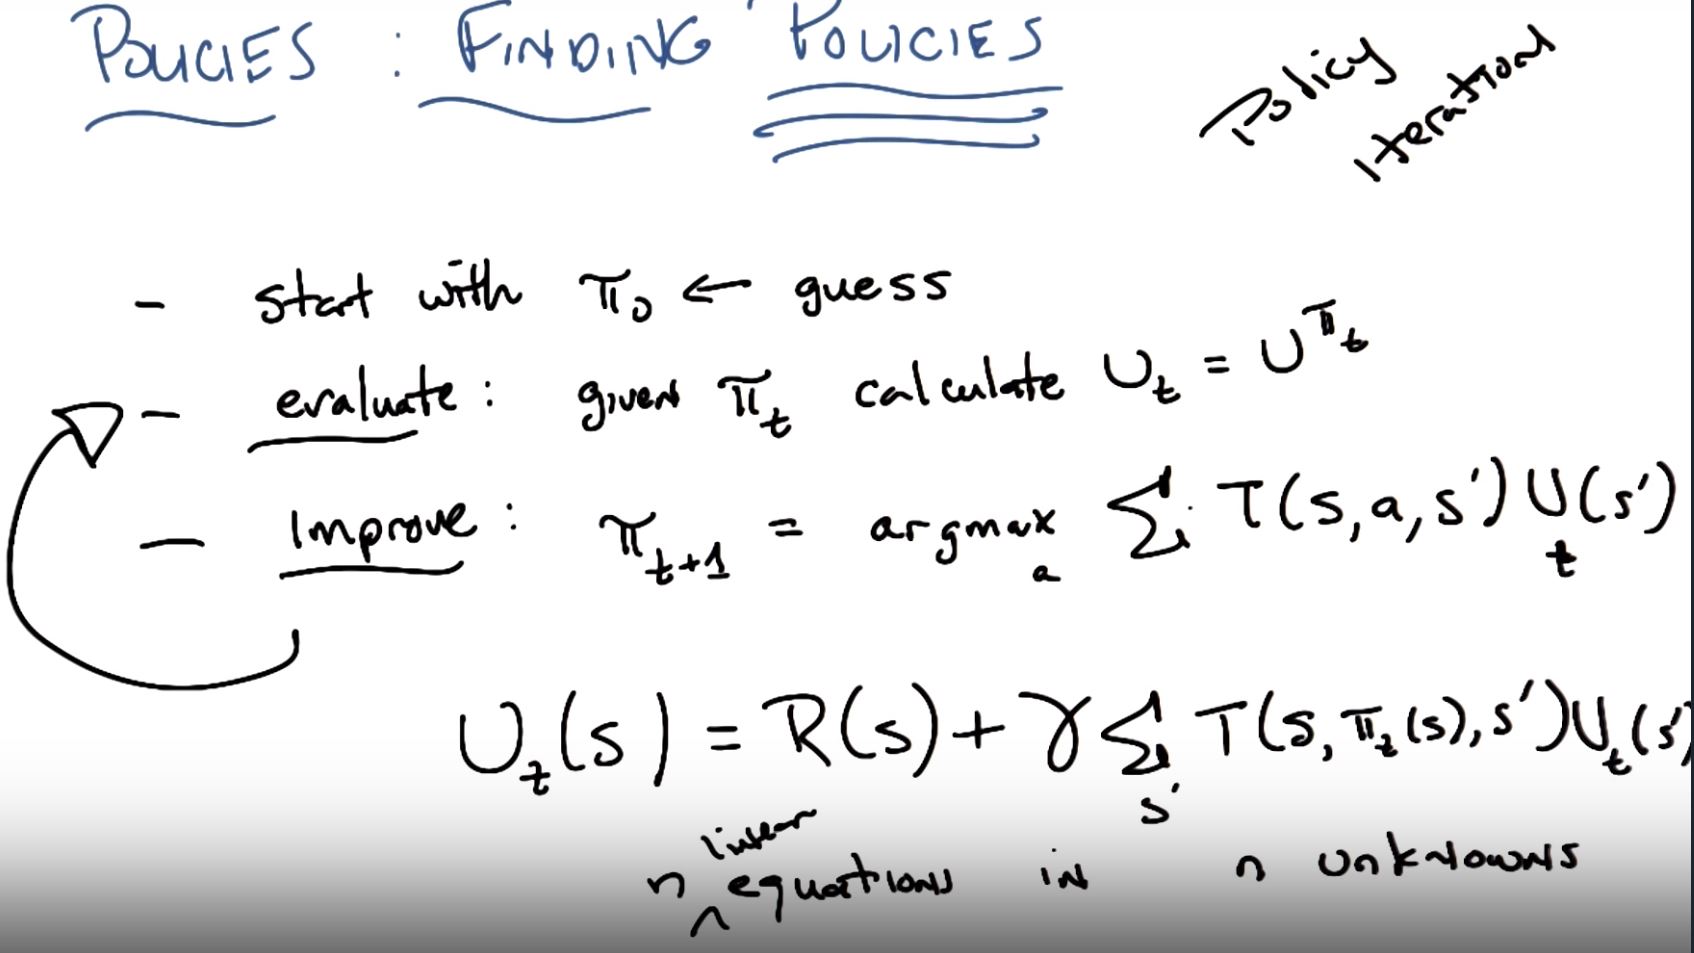 POLICIES : FINDING POLICIES
Policy
Iteration
- start with π₀ ← guess
- evaluate: given π_t calculate U_t = U^π_t
- Improve: π_t+1 = argmax_a Σ T(s,a,s') U_t(s')
U_t(s) = R(s) + γ Σ_s' T(s, π_t(s), s') U_t(s')
n linear equations in n unknowns